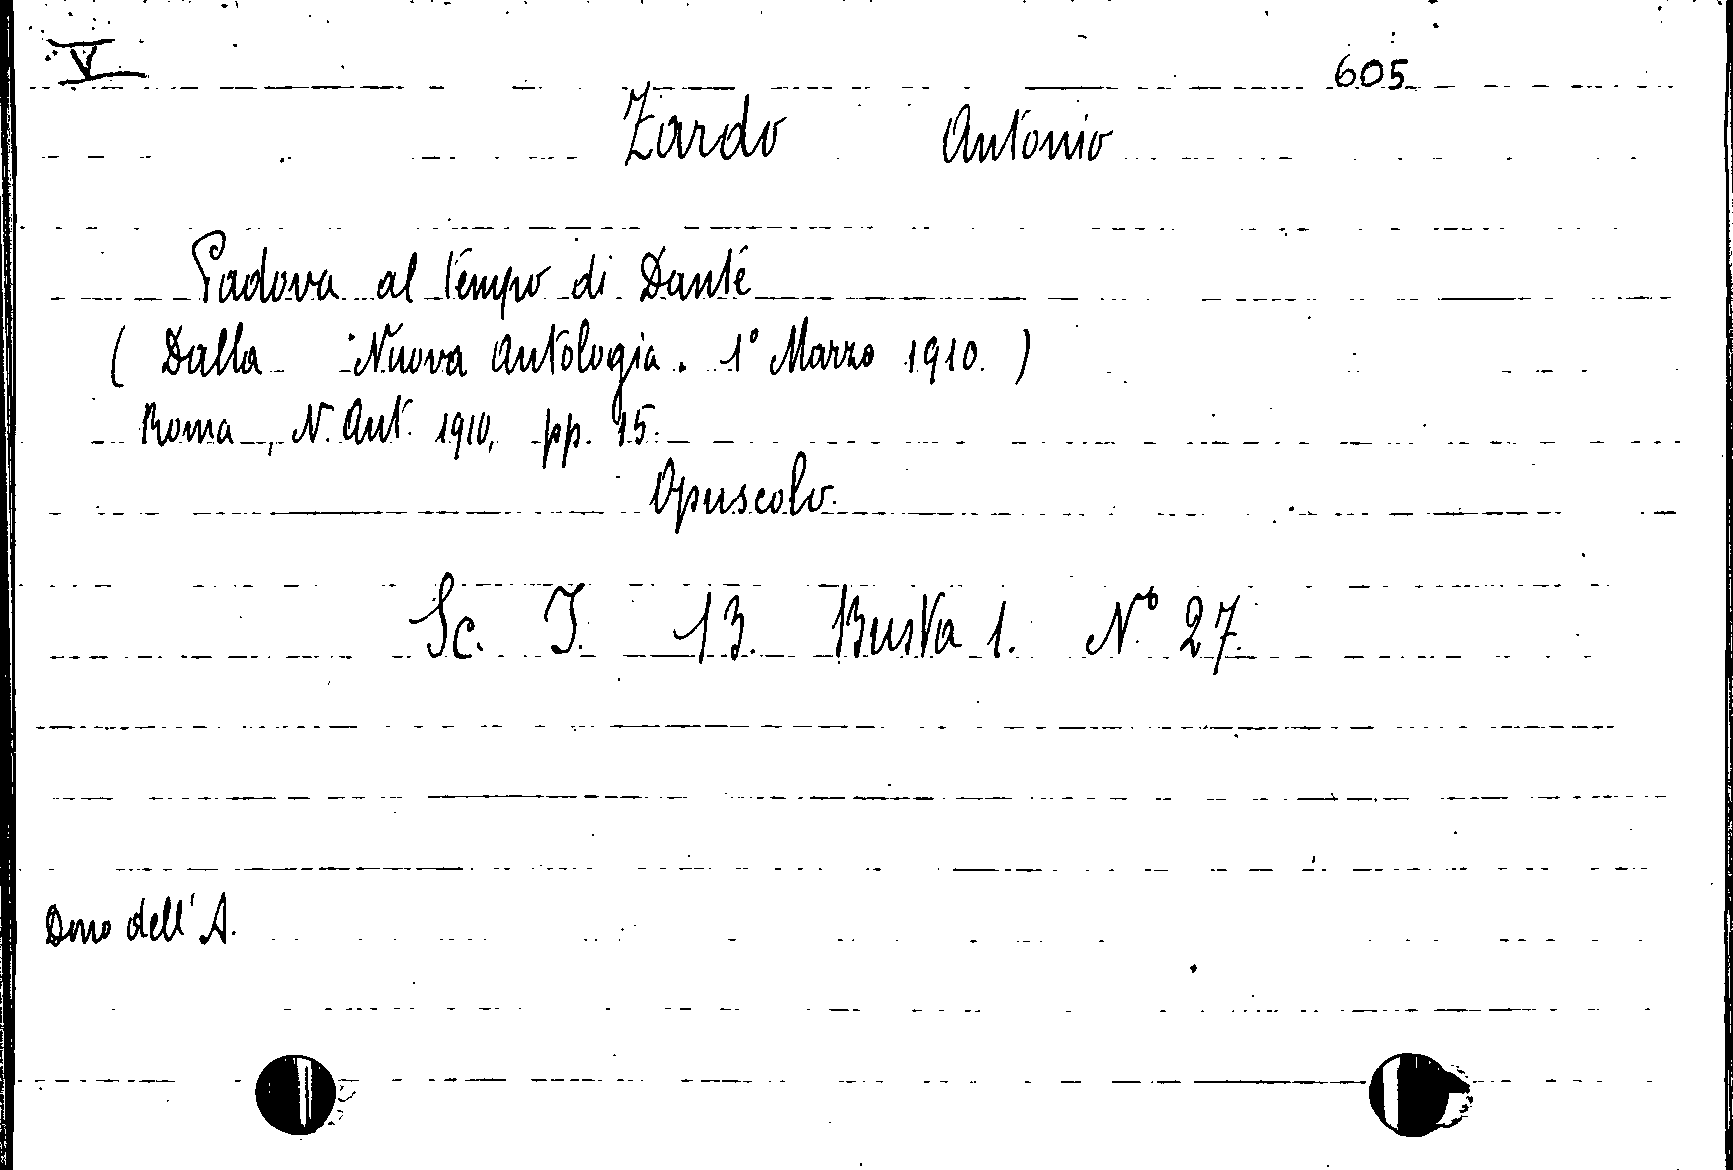 V 605
Zardo Antonio
Padova al tempo di Dante
( Dalla Nuova Antologia. 1° Marzo 1910. )
Roma, N. Ant. 1910, pp. 15.
Opuscolo.
Sc. I. 13. Busta 1. N° 27.
Dono dell'A.